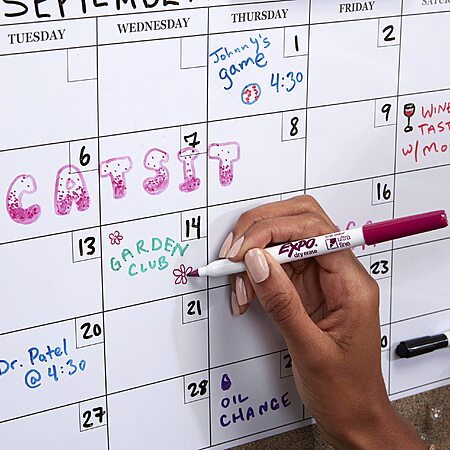 SEPTEMBER
TUESDAY WEDNESDAY THURSDAY FRIDAY
1 2
Johnny's
game
4:30
6 7 8 9
CATSIT
WINE
TAST
w/ MO
13 14 16
GARDEN
CLUB
EXPO
dry erase
ultra
fine
20 21 23
Dr. Patel
@ 4:30
27 28
OIL
CHANGE